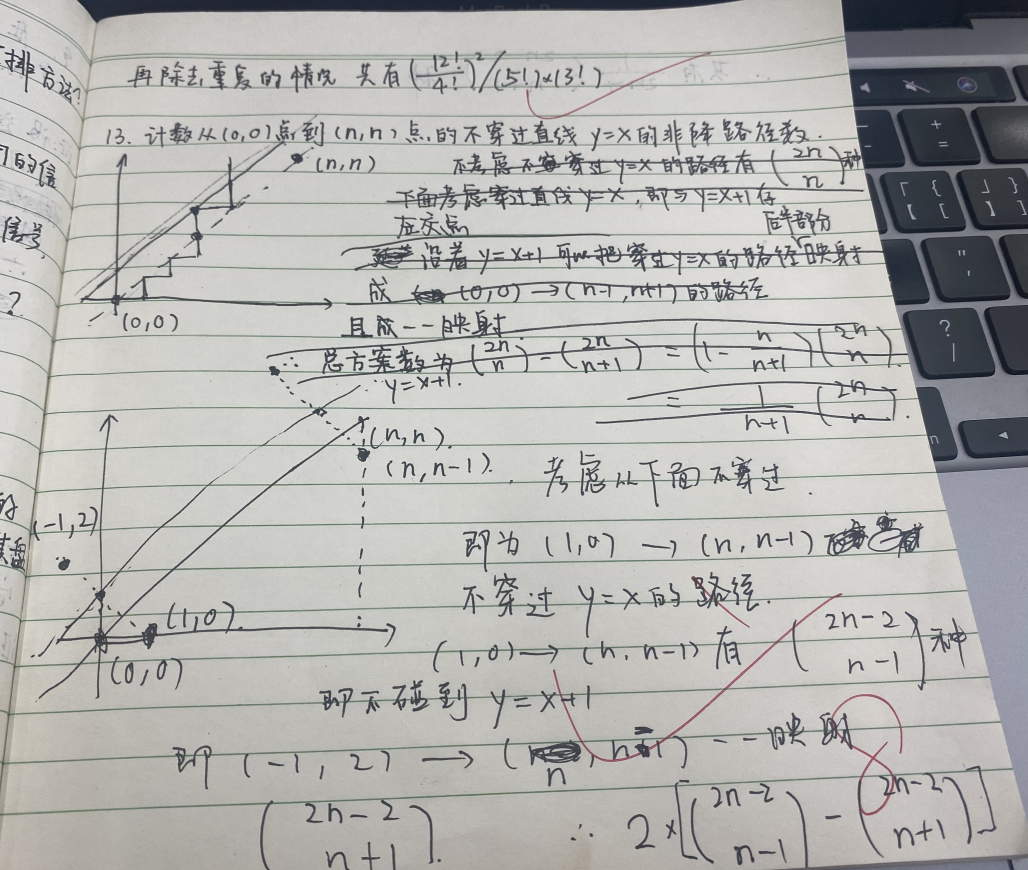 排方法?
的信
信号
?
的
再除去重复的情况 共有 (12!/4!)²/(5!)×(3!)
13. 计数从(0,0)点到(n,n)点的不穿过直线 y=x 的非降路径数.
(n,n)
不考虑不穿过 y=x 的路径有 (2n n) 种
下面考虑穿过直线 y=x, 即与 y=x+1 存
在交点 后半部分
沿着 y=x+1 可以把穿过 y=x 的路径映射
成 (0,0)→(n-1,n+1) 的路径
(0,0)
且成一一映射
总方案数为 (2n n) - (2n n+1) = (1 - n/n+1)(2n n)
y=x+1.
= 1/n+1 (2n n).
(n,n).
(n,n-1).
考虑从下面不穿过.
(-1,2)
即为 (1,0) → (n,n-1)
不穿过 y=x 的路径.
(1,0).
(0,0)
(1,0)→(n,n-1) 有 (2n-2 n-1) 种
即不碰到 y=x+1
即 (-1,2) → (n,n-1) 一一映射
(2n-2 n+1).
∴ 2×[(2n-2 n-1) - (2n-2 n+1)]
+
=
{
「
【
[
}
」
】
]
"
'
?
/
|
\
n